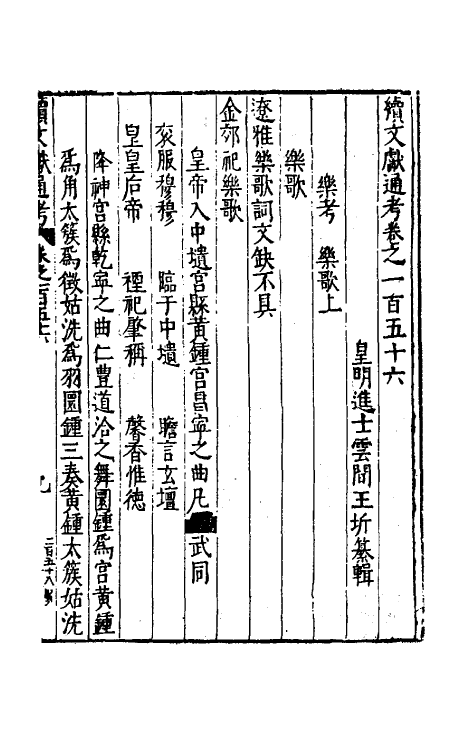 續文獻通考卷之一百五十六
皇明進士雲間王圻纂輯
樂考 樂歌上
樂歌
遼雅樂歌詞文缺不具
金郊祀樂歌
皇帝入中壝宮縣黃鍾宮昌寧之曲凡武同
衮服穆穆 臨于中壝 瞻言玄壇
皇皇后帝 禋祀肇稱 馨香惟徳
降神宮縣乾寧之曲仁豊道洽之舞圜鍾爲宮黃鍾
爲角太簇爲徵姑洗爲羽圜鍾三奏黃鍾太簇姑洗
續文獻通考 卷之一百五十六